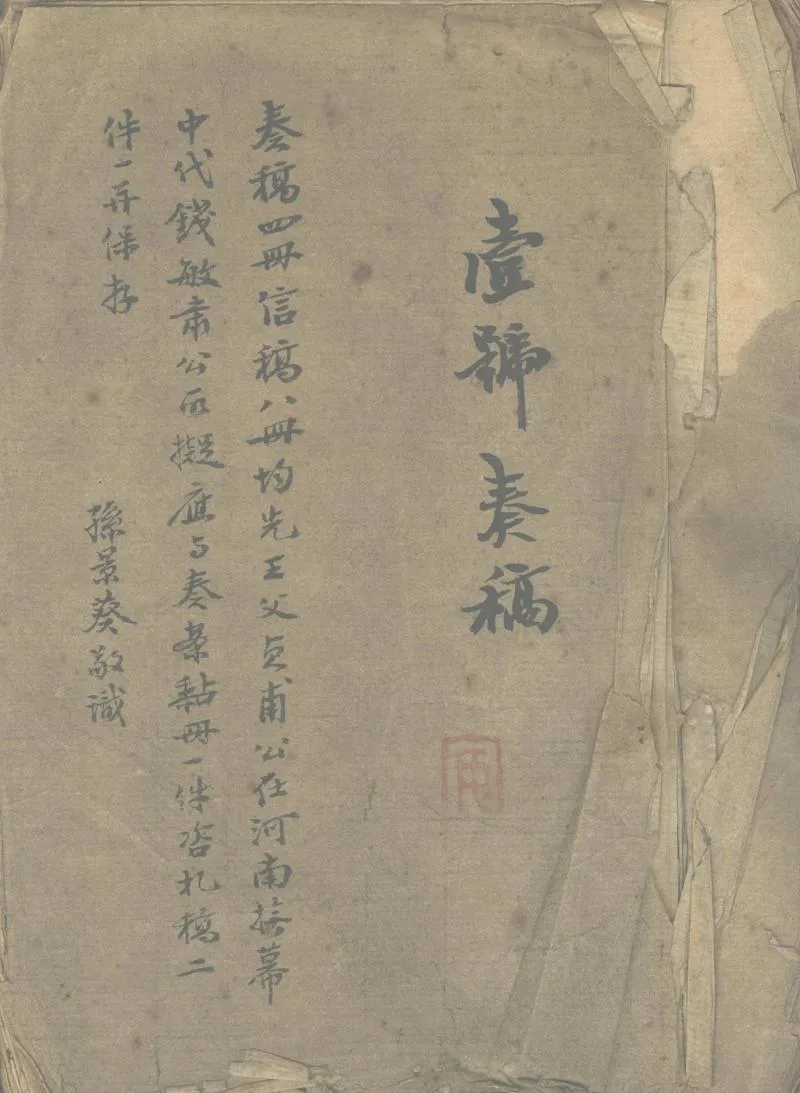 壹號奏稿
奏稿四冊信稿八冊均先王父貞甫公在河南撫幕
中代錢敏肅公所擬應与奏稾黏冊一件咨札稿二
件一并保存
孫景葵敬識